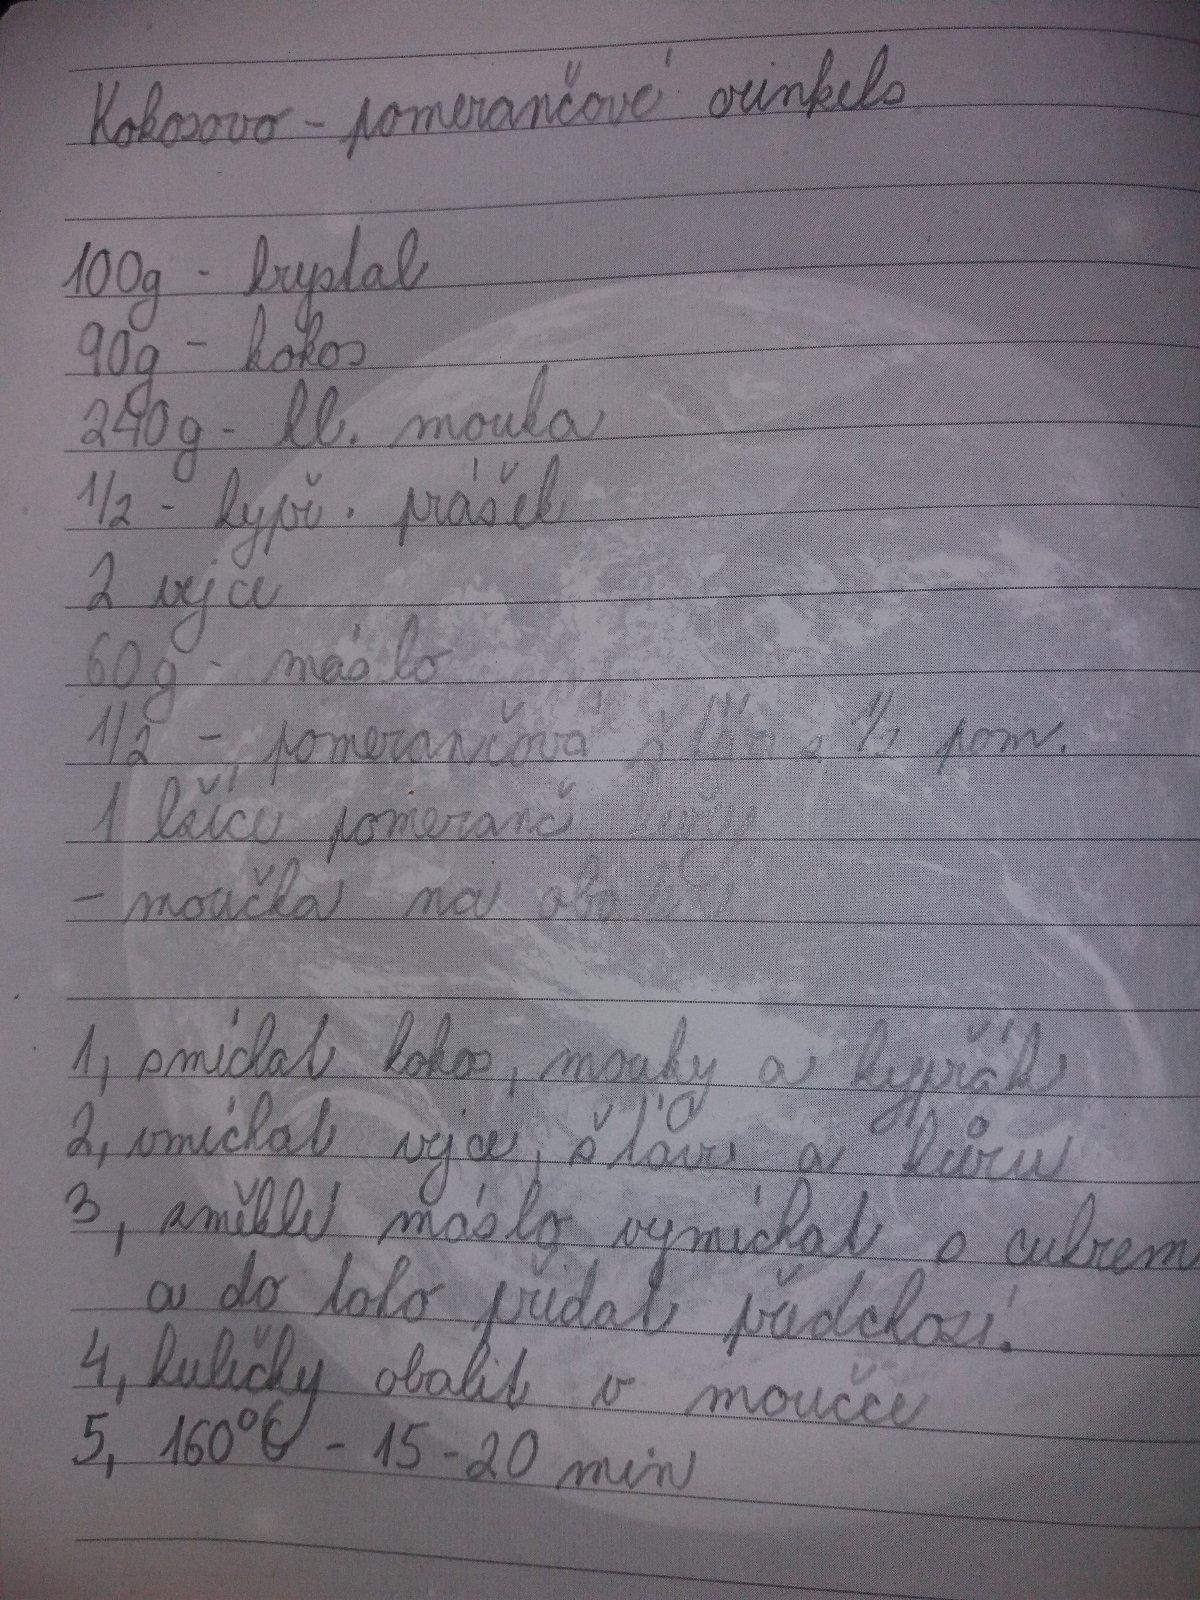 Kokosovo - pomerančové crinkels
100g - krystal
90g - kokos
240g - hl. mouka
1/2 - kypř. prášek
2 vejce
60g - máslo
1/2 - pomerančová šťáva z 1/2 pom.
1 lžíce pomeranč. kůry
- moučka na obalení
1, smíchat kokos, mouky a kypřák
2, vmíchat vejce, šťávu a kůru
3, změklé máslo vymíchat s cukrem
a do toho přidat předchozí.
4, kuličky obalit v moučce
5, 160°C - 15-20 min